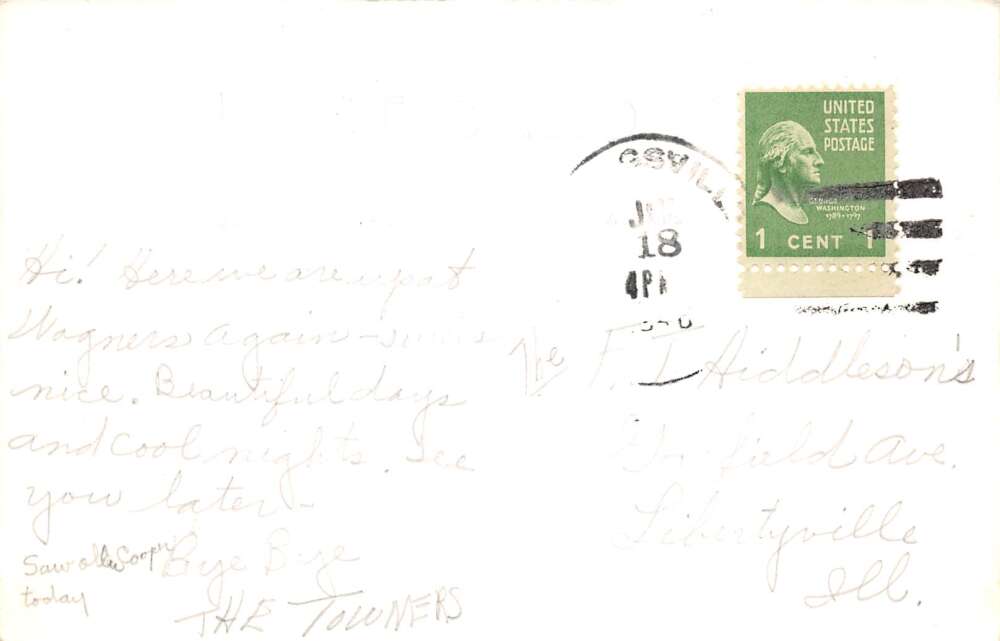 UNITED
STATES
POSTAGE
GEORGE
WASHINGTON
1789-1797
1 CENT 1
GSVILL
18
4P
Hi! Here we are up at
Wagners again -
nice. Beautiful days
and cool nights. See
you later -
Bye Bye
THE TOWNERS
Saw
today
The F. I Hiddleson's
field Ave.
Libertyville
Ill.